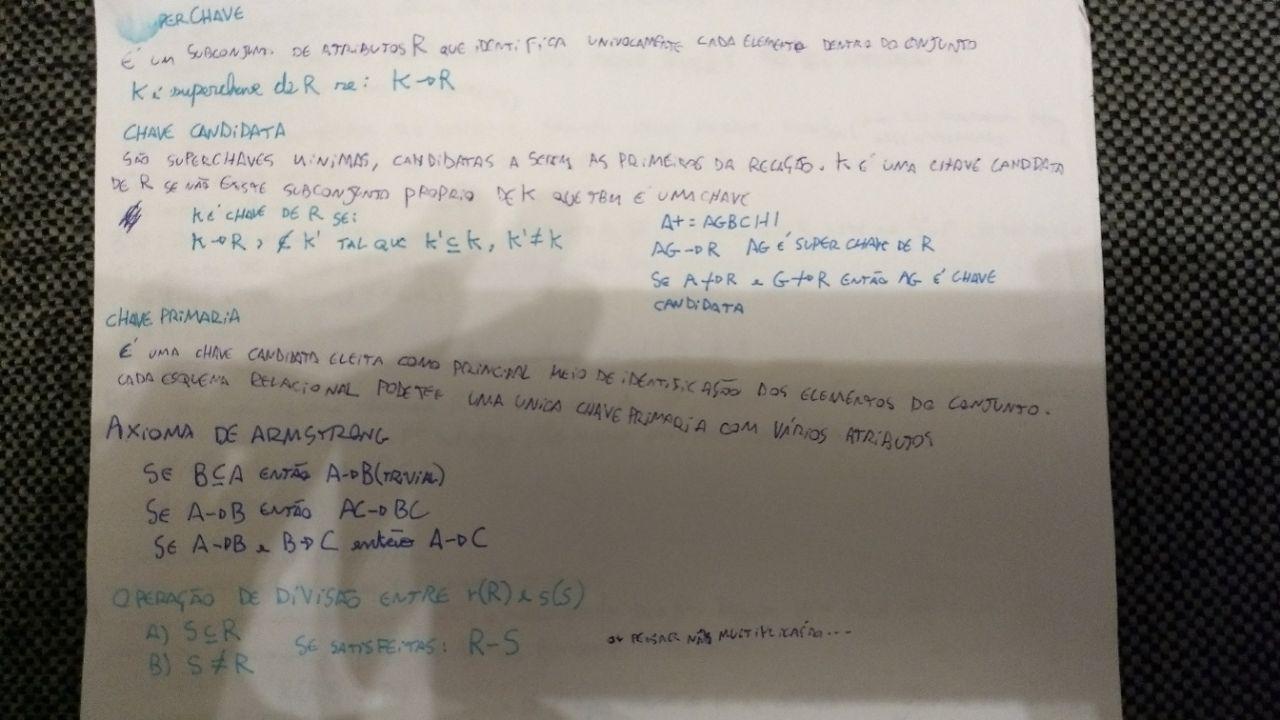 PERCHAVE
É UM SUBCONJUN. DE ATRIBUTOS R QUE IDENTIFICA UNIVOCAMENTE CADA ELEMENTO DENTRO DO CONJUNTO
K é superchave de R se: K→R
CHAVE CANDIDATA
SÃO SUPERCHAVES MINIMAS, CANDIDATAS A SEREM AS PRIMEIRAS DA RELAÇÃO. K É UMA CHAVE CANDIDATA
DE R SE NÃO EXISTE SUBCONJUNTO PROPRIO DE K QUE TBM É UMA CHAVE
K É CHAVE DE R SE:
K→R, ∄ K' TAL QUE K'⊆K, K'≠K
A+=AGBCHI
AG→R AG É SUPER CHAVE DE R
SE A↛R e G↛R ENTÃO AG É CHAVE
CANDIDATA
CHAVE PRIMARIA
É UMA CHAVE CANDIDATA ELEITA COMO PRINCIPAL MEIO DE IDENTIFICAÇÃO DOS ELEMENTOS DO CONJUNTO.
CADA ESQUEMA RELACIONAL PODE TER UMA UNICA CHAVE PRIMARIA COM VÁRIOS ATRIBUTOS
AXIOMA DE ARMSTRONG
SE B⊆A ENTÃO A→B(TRIVIAL)
SE A→B ENTÃO AC→BC
SE A→B e B→C então A→C
OPERAÇÃO DE DIVISÃO ENTRE r(R) e s(S)
A) S⊆R
B) S≠R
SE SATISFEITAS: R-S
PENSAR NA MULTIPLICAÇÃO...